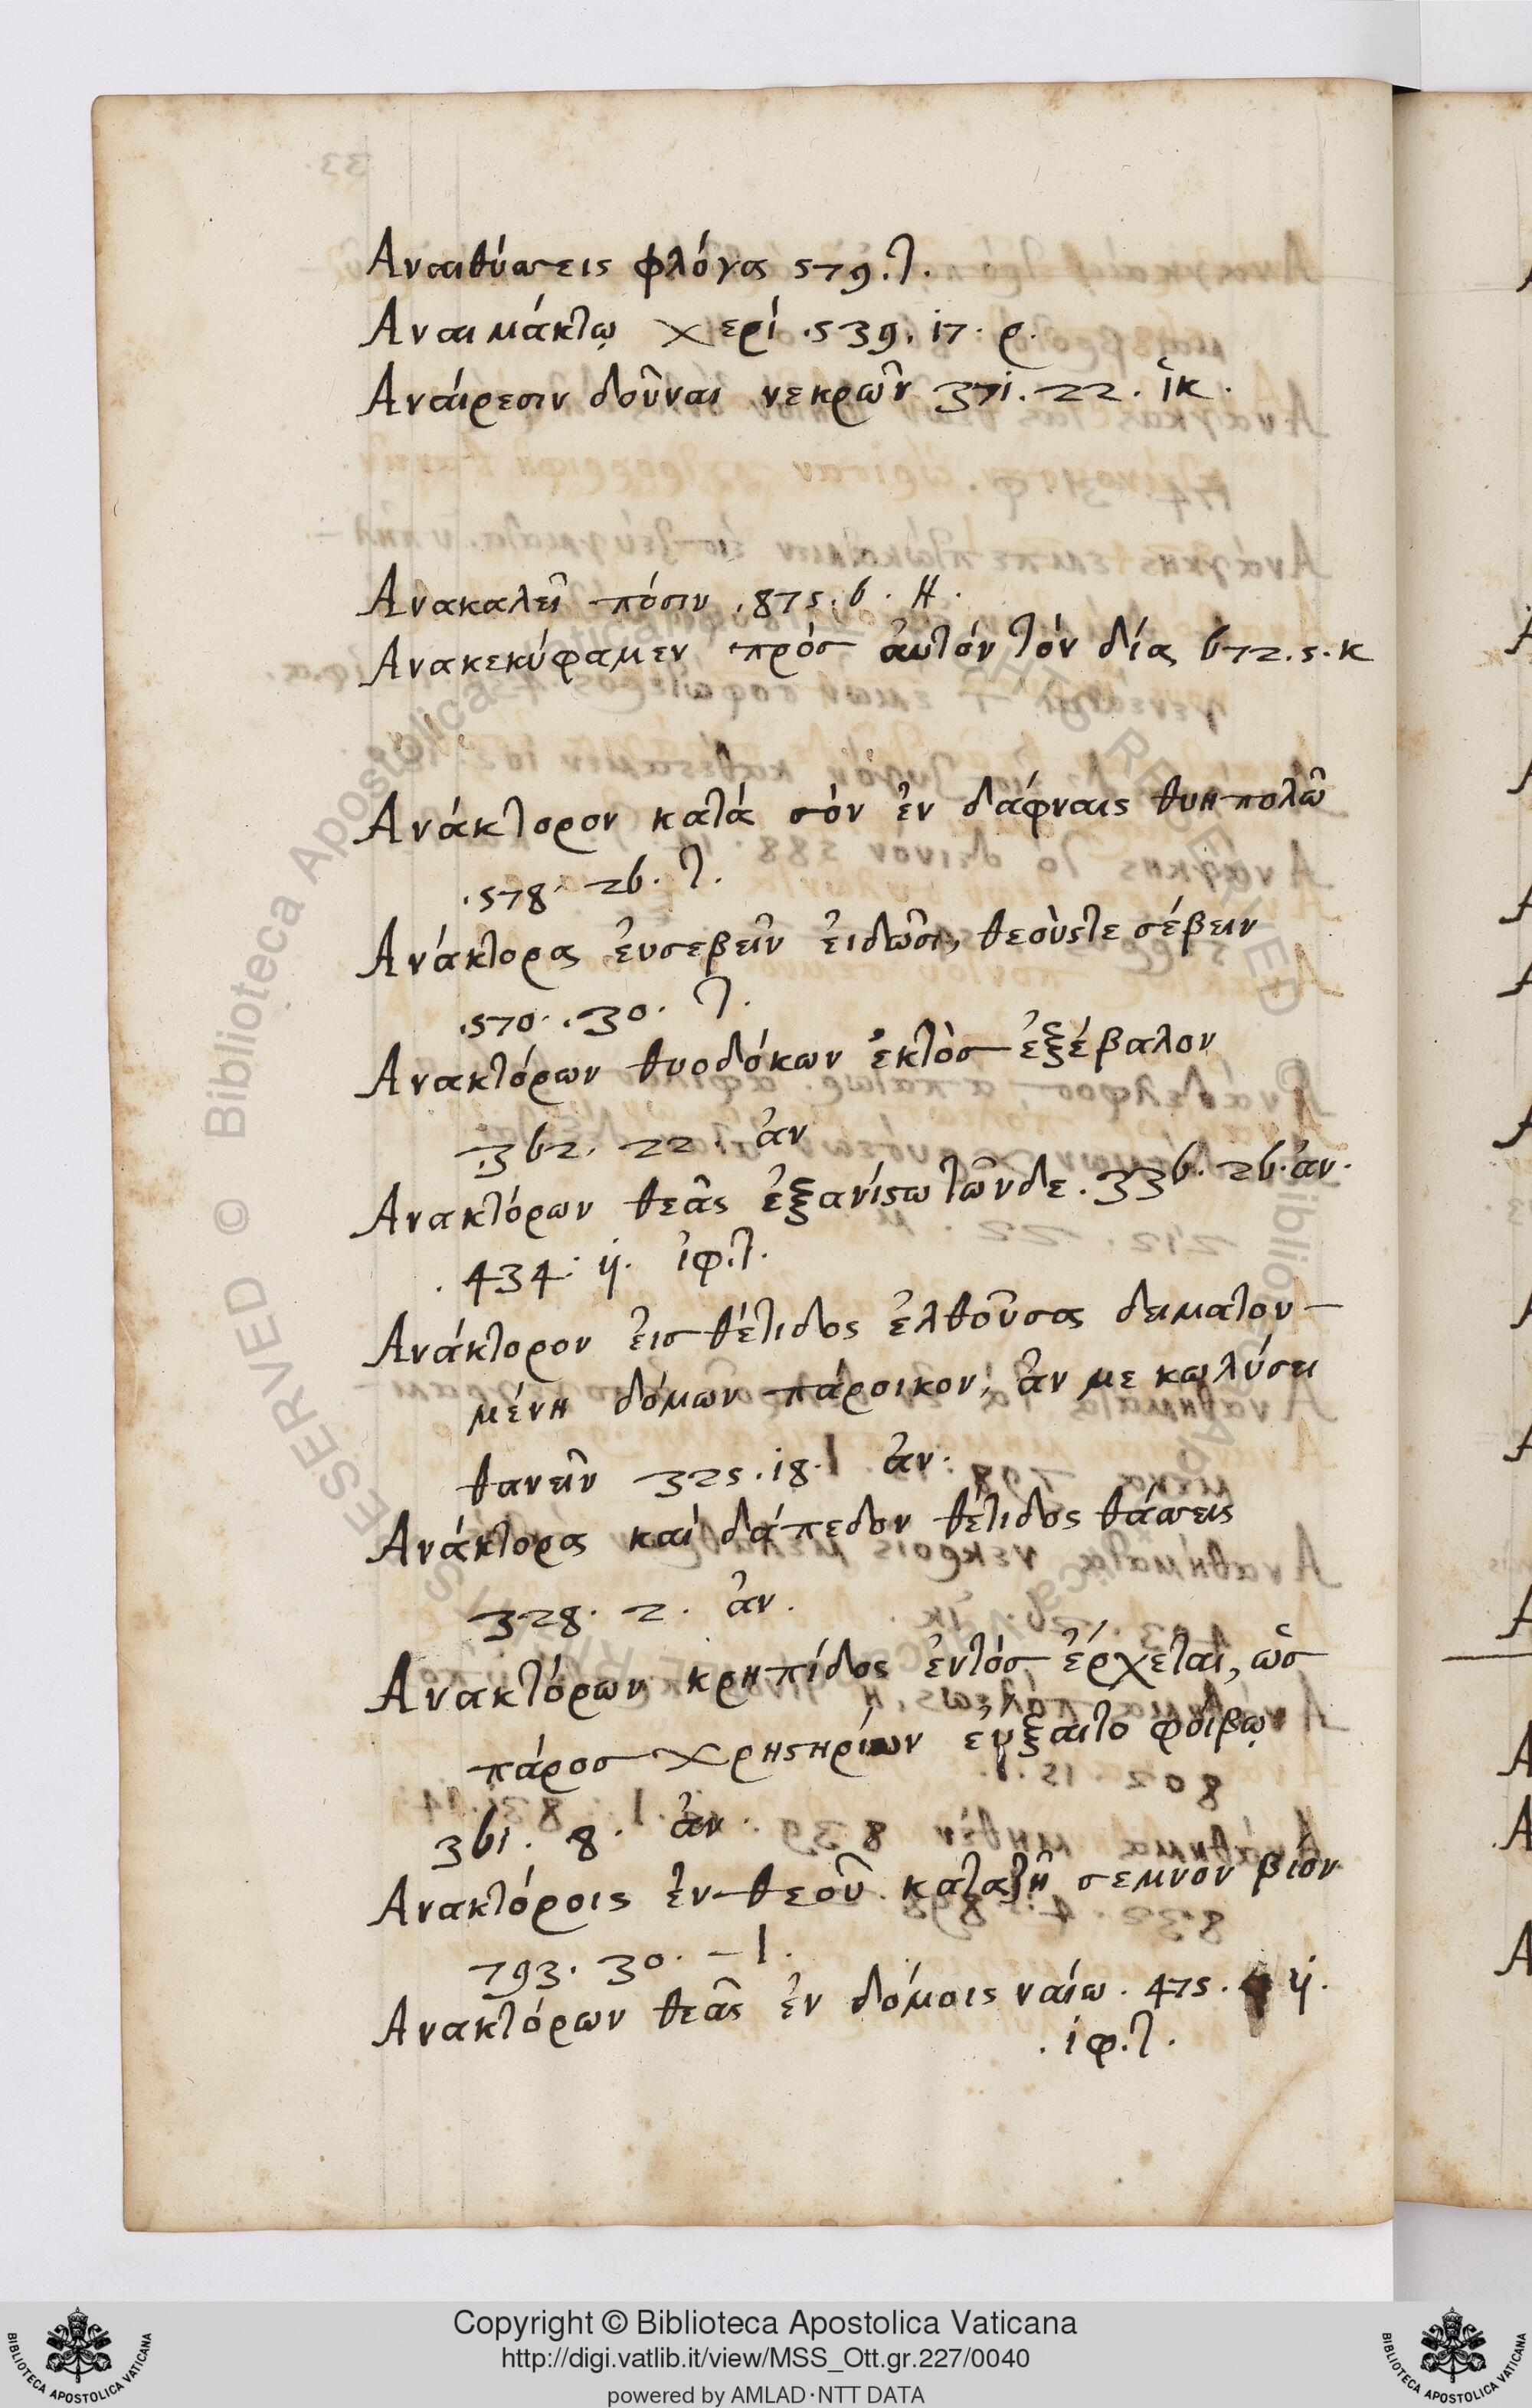 Αναιθύσσεις φλόγα 579. τ.
Αναιμάκτῳ χερί .539. 17. ρ.
Αναίρεσιν δοῦναι νεκρῶν 371. 22. ἱκ.
Ανακαλεῖ πόσιν .875. 6. Η.
Ανακεκύφαμεν πρὸσ ἀυτόν τόν δία 672. 5. κ
Ανάκτορον κατά σὸν ἐν δάφναις θυηπολῶ
.578. 26. τ.
Ανάκτορα ἐυσεβεῖν ἐιδῶσι, θεὸυς τε σέβειν
.570. .30. τ.
Ανακτόρων θυοδόκων ἐκτὸσ ἐξέβαλον
.362. 22. ἀν
Ανακτόρων θεᾶς ἐξανίςω τῶνδε. 336. 26. ἀν.
. 434. ij. ἰφ. τ.
Ανάκτορον ἐισ θέτιδος ἐλθοῦσα δειματου-
μένη δόμων πάροικον, ἀν με κωλύσει
θανεῖν 325. 18. ἀν.
Ανάκτορα καὶ δάπεδον θέτιδος θάσσεις
328. 2. ἀν.
Ανακτόρων κρηπίδος ἐντόσ ἐρχεται, ὡσ
πάροσ χρηςηρίων ἐυξαιτο φοίβῳ
361. 8. ἀν.
Ανακτόροις ἐν θεοῦ καταζῇ σεμνὸν βίον
793. 30. -Ι.
Ανακτόρων θεᾶς ἐν δόμοις ναίω. 475. ij.
. ἰφ. τ.
Copyright © Biblioteca Apostolica Vaticana
http://digi.vatlib.it/view/MSS_Ott.gr.227/0040
powered by AMLAD·NTT DATA